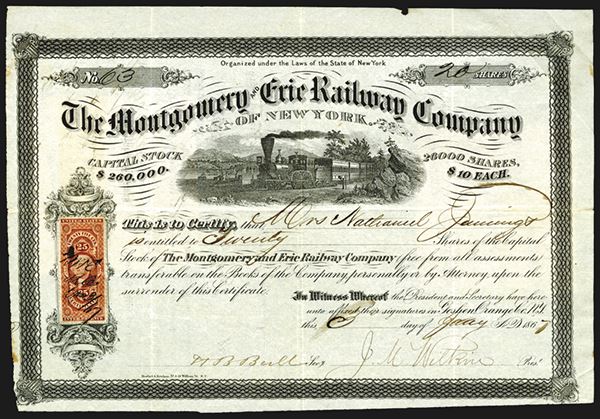 Organized under the Laws of the State of New York
No. 63
20 SHARES
The Montgomery AND Erie Railway Company
OF NEW YORK.
CAPITAL STOCK
$ 260,000.
26000 SHARES,
$ 10 EACH.
This is to Certify, that Mrs Nathaniel
is entitled to Twenty Shares of the Capital
Stock of The Montgomery and Erie Railway Company, free from all assessments
transferable on the Books of the Company personally or by Attorney, upon the
surrender of this Certificate.
In Witness Whereof the President and Secretary have here
unto affixed their signatures in Goshen Orange Co. N.Y.
this day of Jany A.D. 186
25
Sec'y J. M. Wilkin Pres't